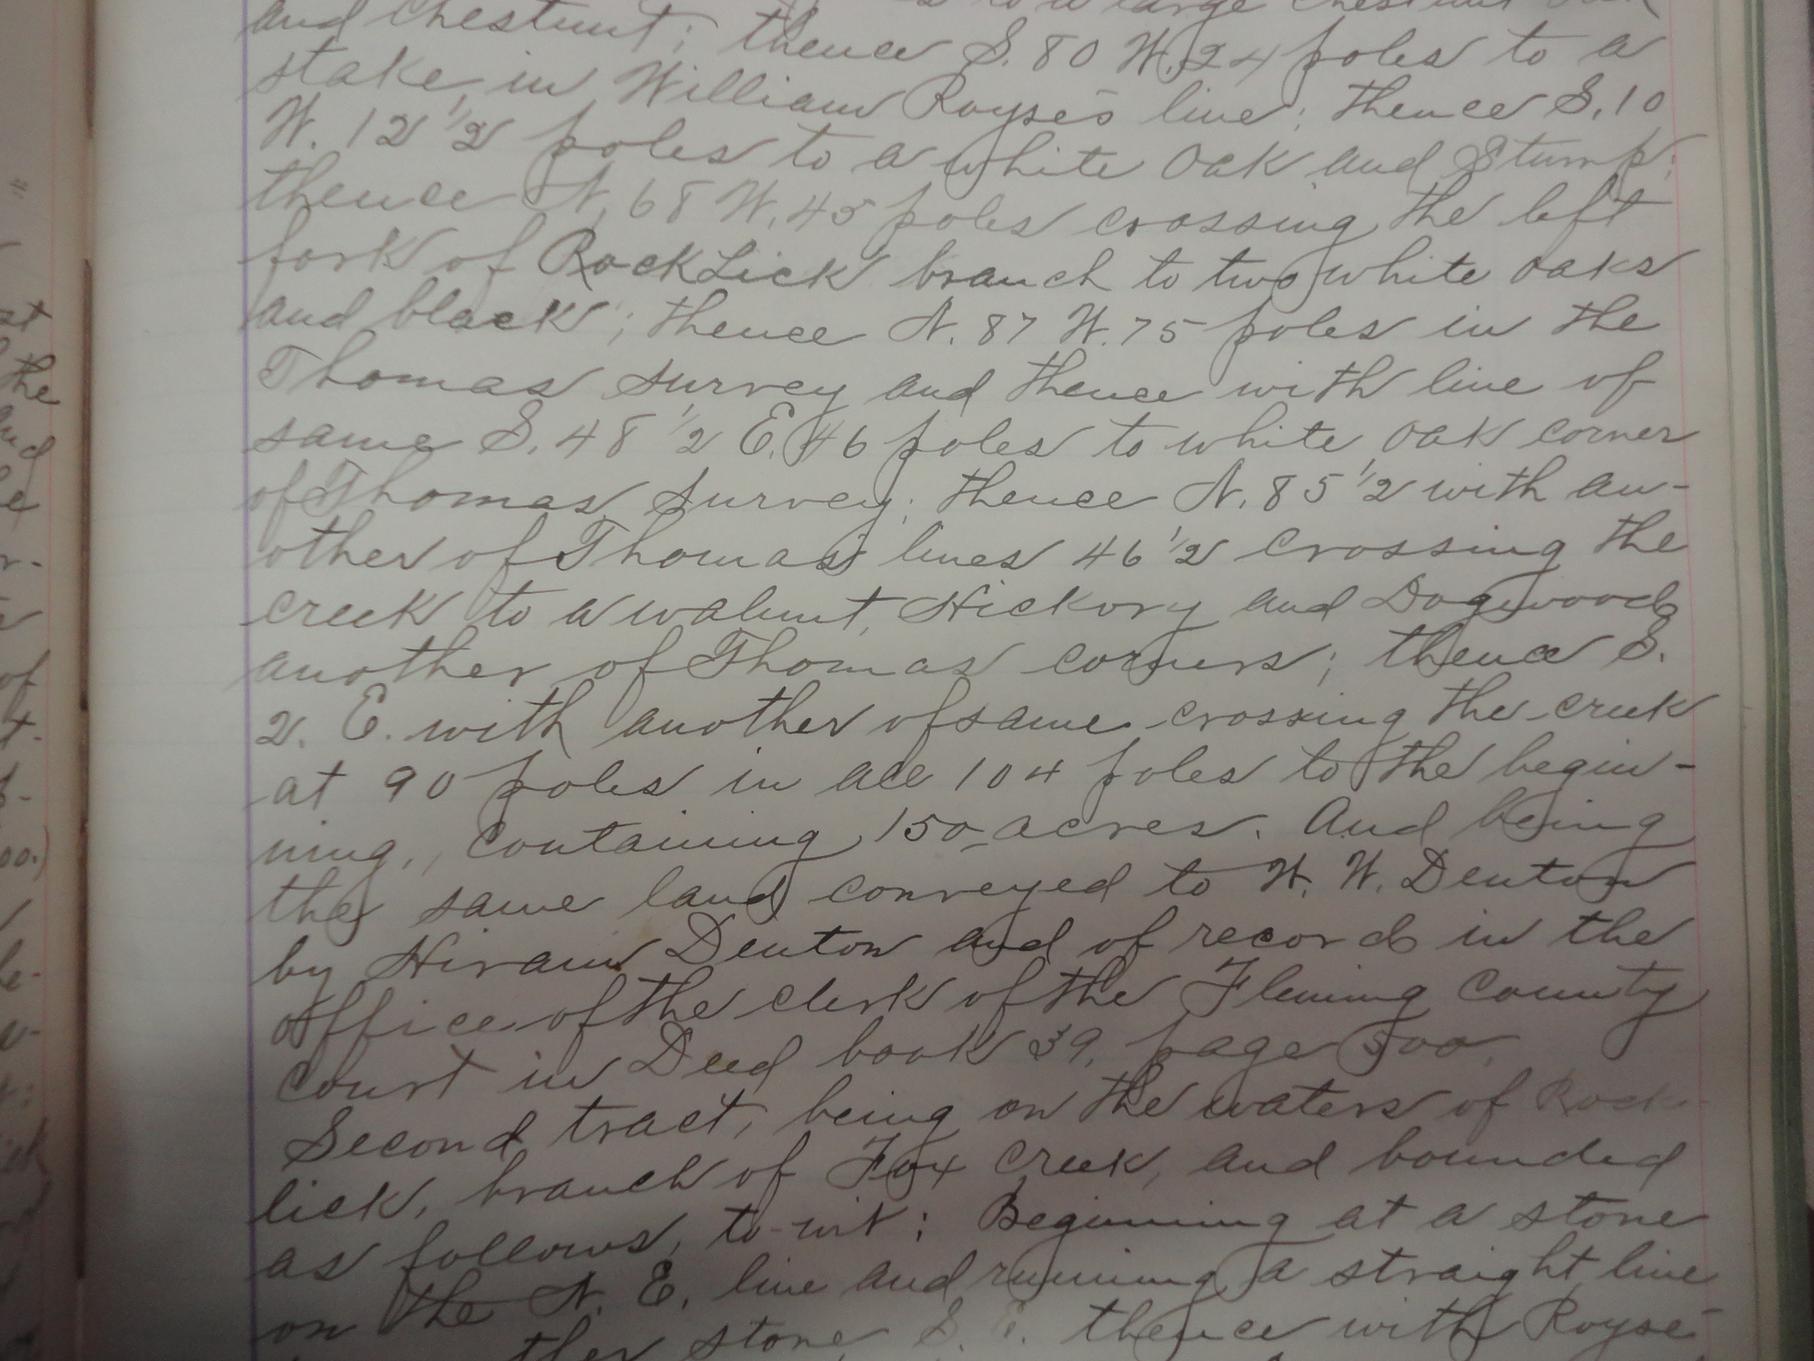 to a large chestnut oak
and Chestnut; thence S. 80 W. 24 poles to a
stake, in William Royse's line; thence S. 10
W. 12 1/2 poles to a white oak and Stump;
thence N. 68 W. 45 poles crossing the left
fork of Rock Lick branch to two white oaks
and black; thence N. 87 W. 75 poles in the
Thomas survey and thence with line of
same S. 48 1/2 E. 46 poles to white oak corner
of Thomas survey; thence N. 85 1/2 with an-
other of Thomas' lines 46 1/2 crossing the
creek to a walnut, Hickory and Dogwood
another of Thomas corners; thence S.
2. E. with another of same crossing the creek
at 90 poles in all 104 poles to the begin-
ning, containing 150 acres. And being
the same land conveyed to W. W. Denton
by Hiram Denton and of record in the
office of the clerk of the Fleming County
Court in Deed book 39, page 500.
Second tract, being on the waters of Rock
lick, branch of Fox Creek, and bounded
as follows, to-wit; Beginning at a stone
on the N. E. line and running a straight line
stone S. E. thence with Royse
the
and
of